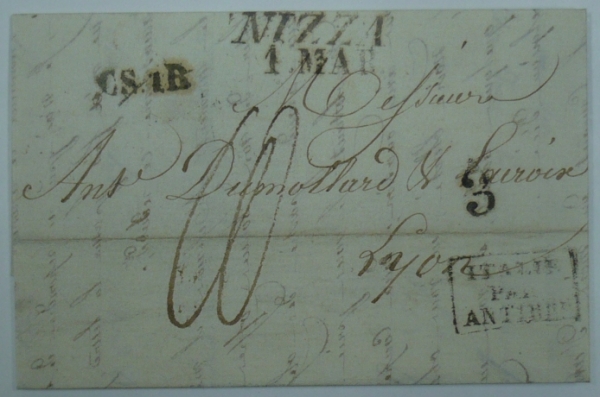 NIZZA
1 MAR
CS.1R.
Messieurs
Ant Dumollard & Lacroix
3
Lyon
ITALIE
PAR
ANTIBES